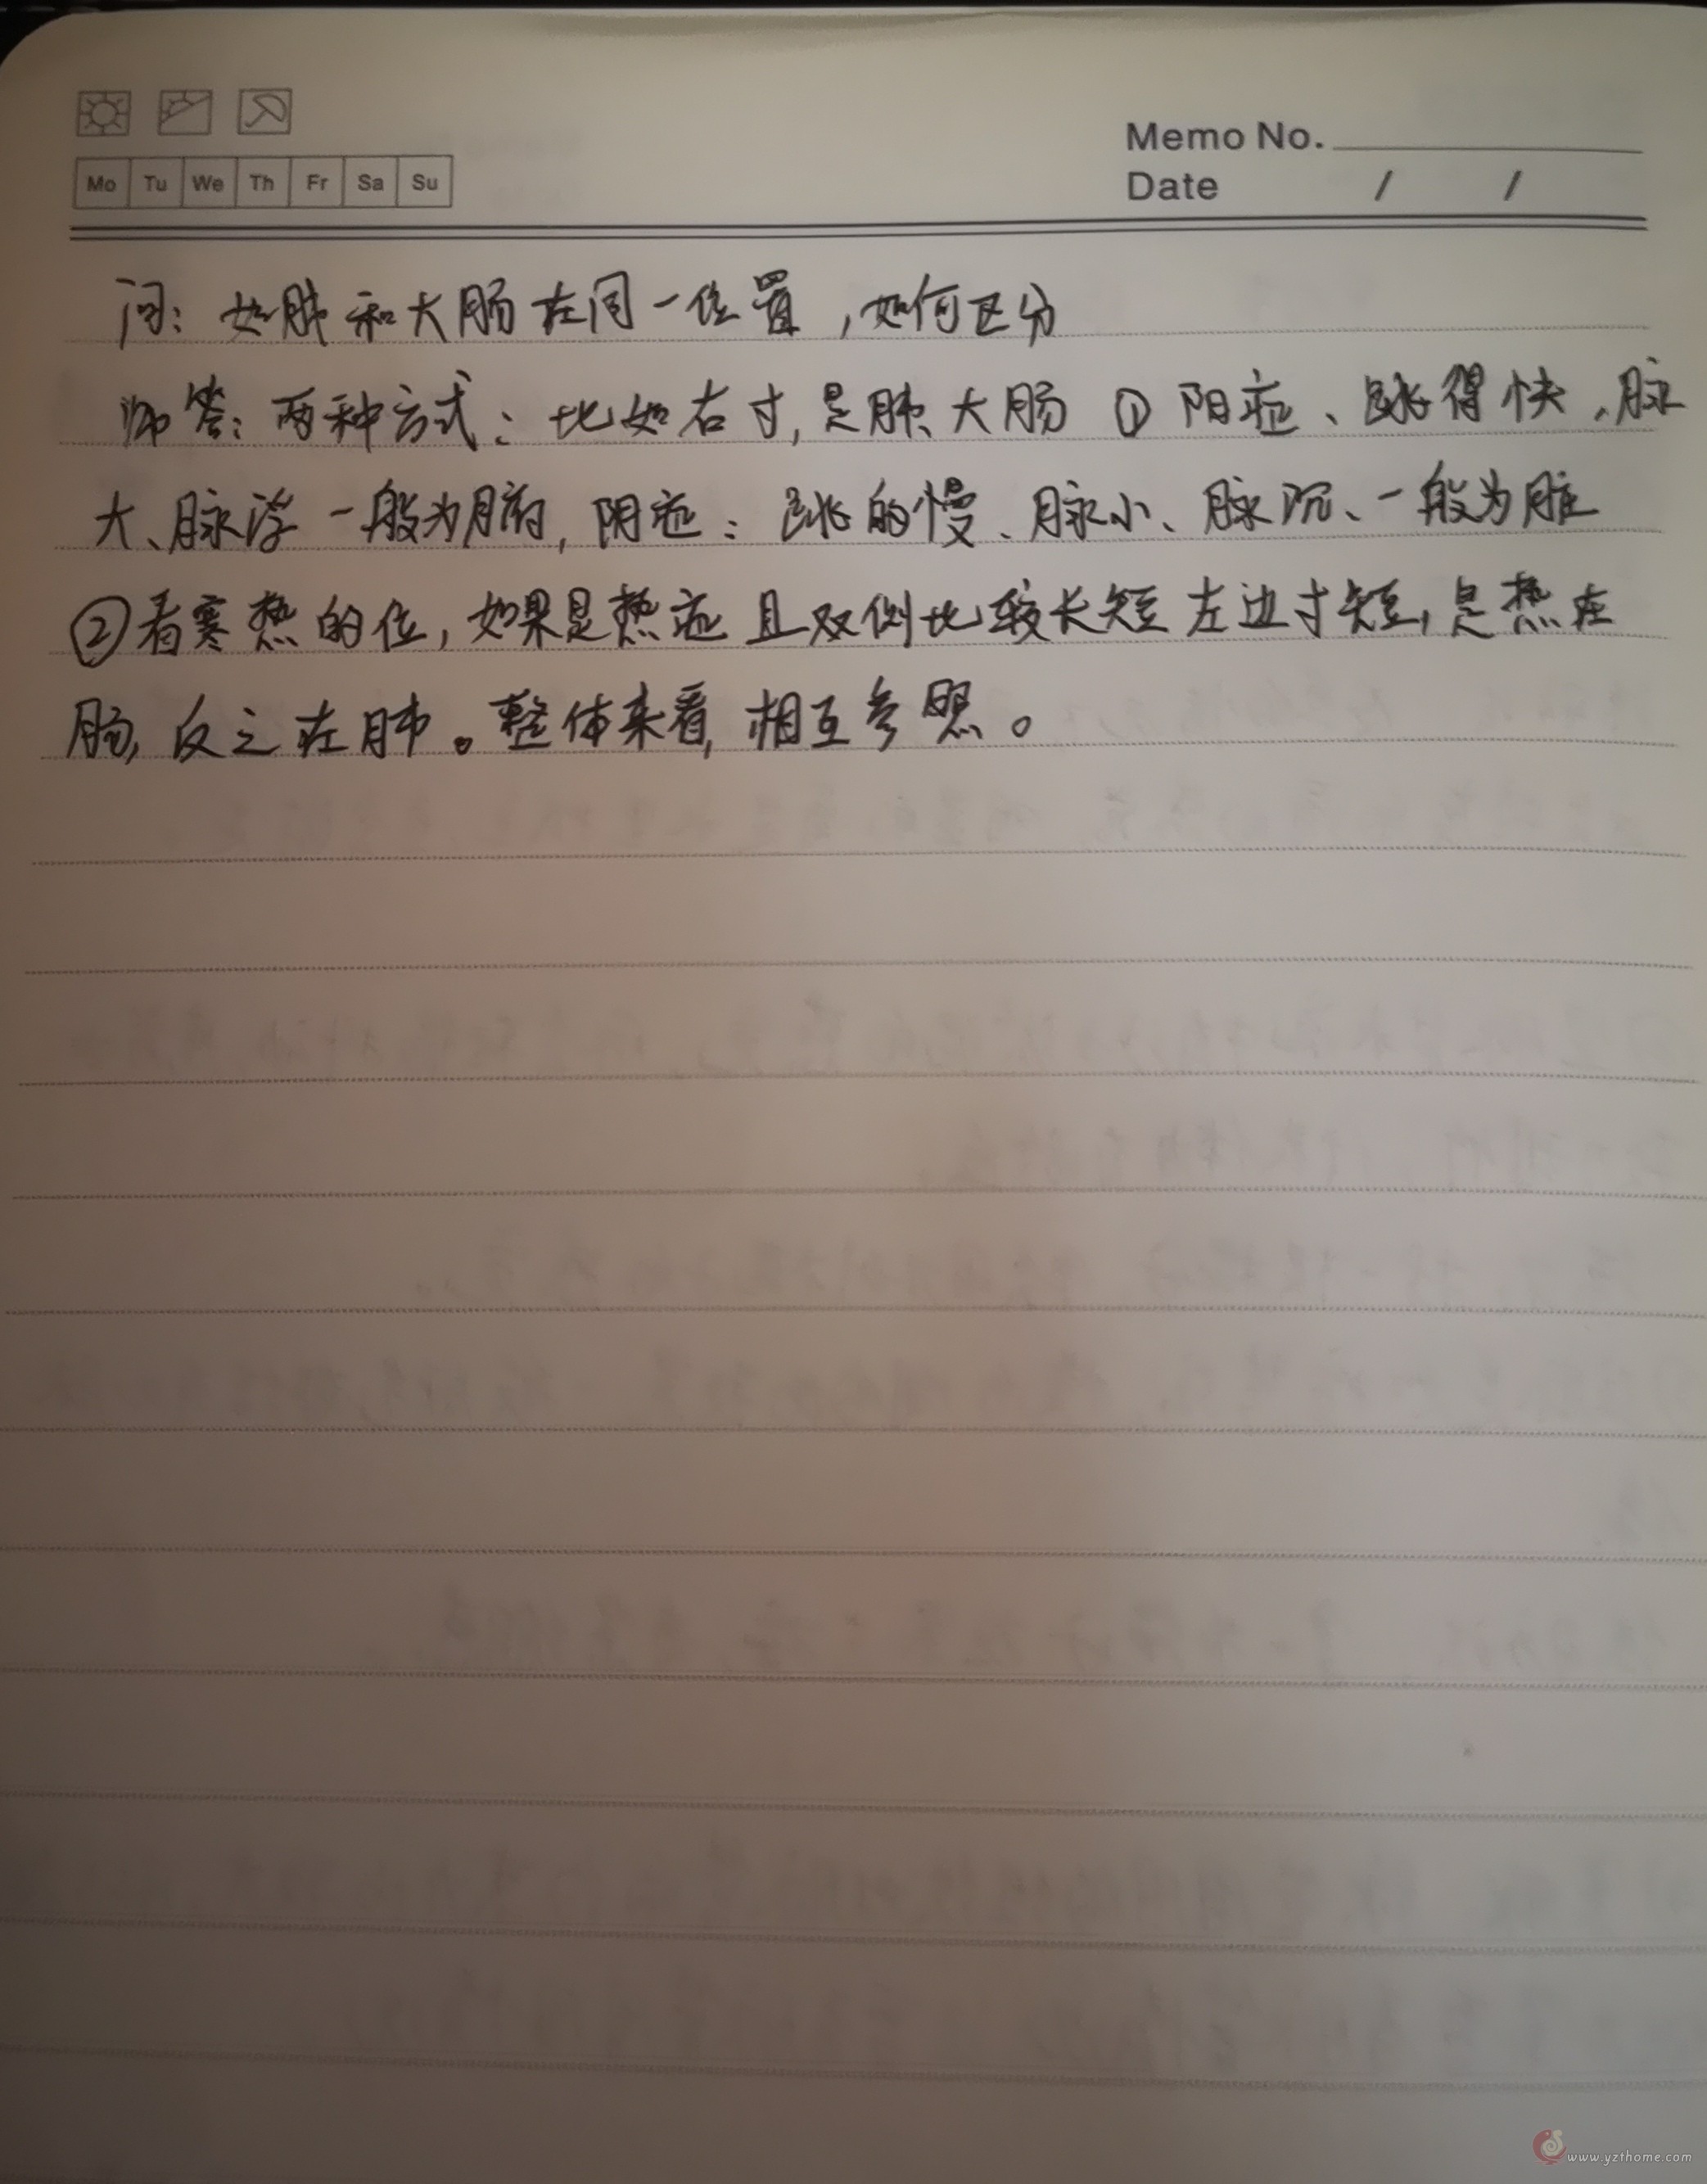 Memo No.
Mo Tu We Th Fr Sa Su
Date / /
问：如肺和大肠在同一位置，如何区分
师答：两种方式：比如右寸，是肺、大肠 ① 阳症、跳得快、脉
大、脉浮一般为腑，阴症：跳的慢、脉小、脉沉、一般为脏
②看寒热的位，如果是热症且双侧比较长短左边寸短，是热在
肠，反之在肺。整体来看，相互参照。
www.yzthome.com